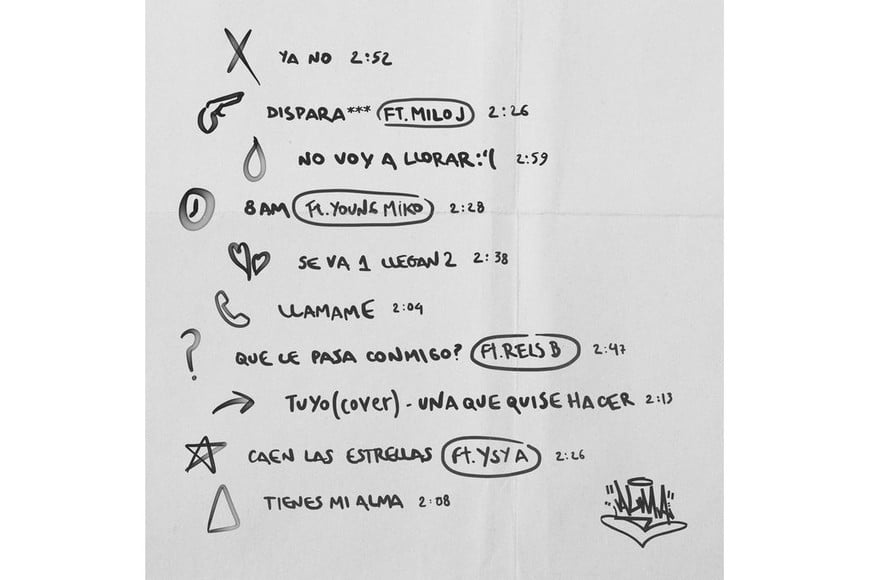 YA NO 2:52
DISPARA*** FT. MILO J 2:26
NO VOY A LLORAR :'( 2:59
8 AM Ft. YOUNG MIKO 2:28
SE VA 1 LLEGAN 2 2:38
LLAMAME 2:04
QUE LE PASA CONMIGO? Ft. RELS B 2:47
TUYO (COVER) - UNA QUE QUISE HACER 2:13
CAEN LAS ESTRELLAS Ft. YSY A 2:26
TIENES MI ALMA 2:08
"ALMA"